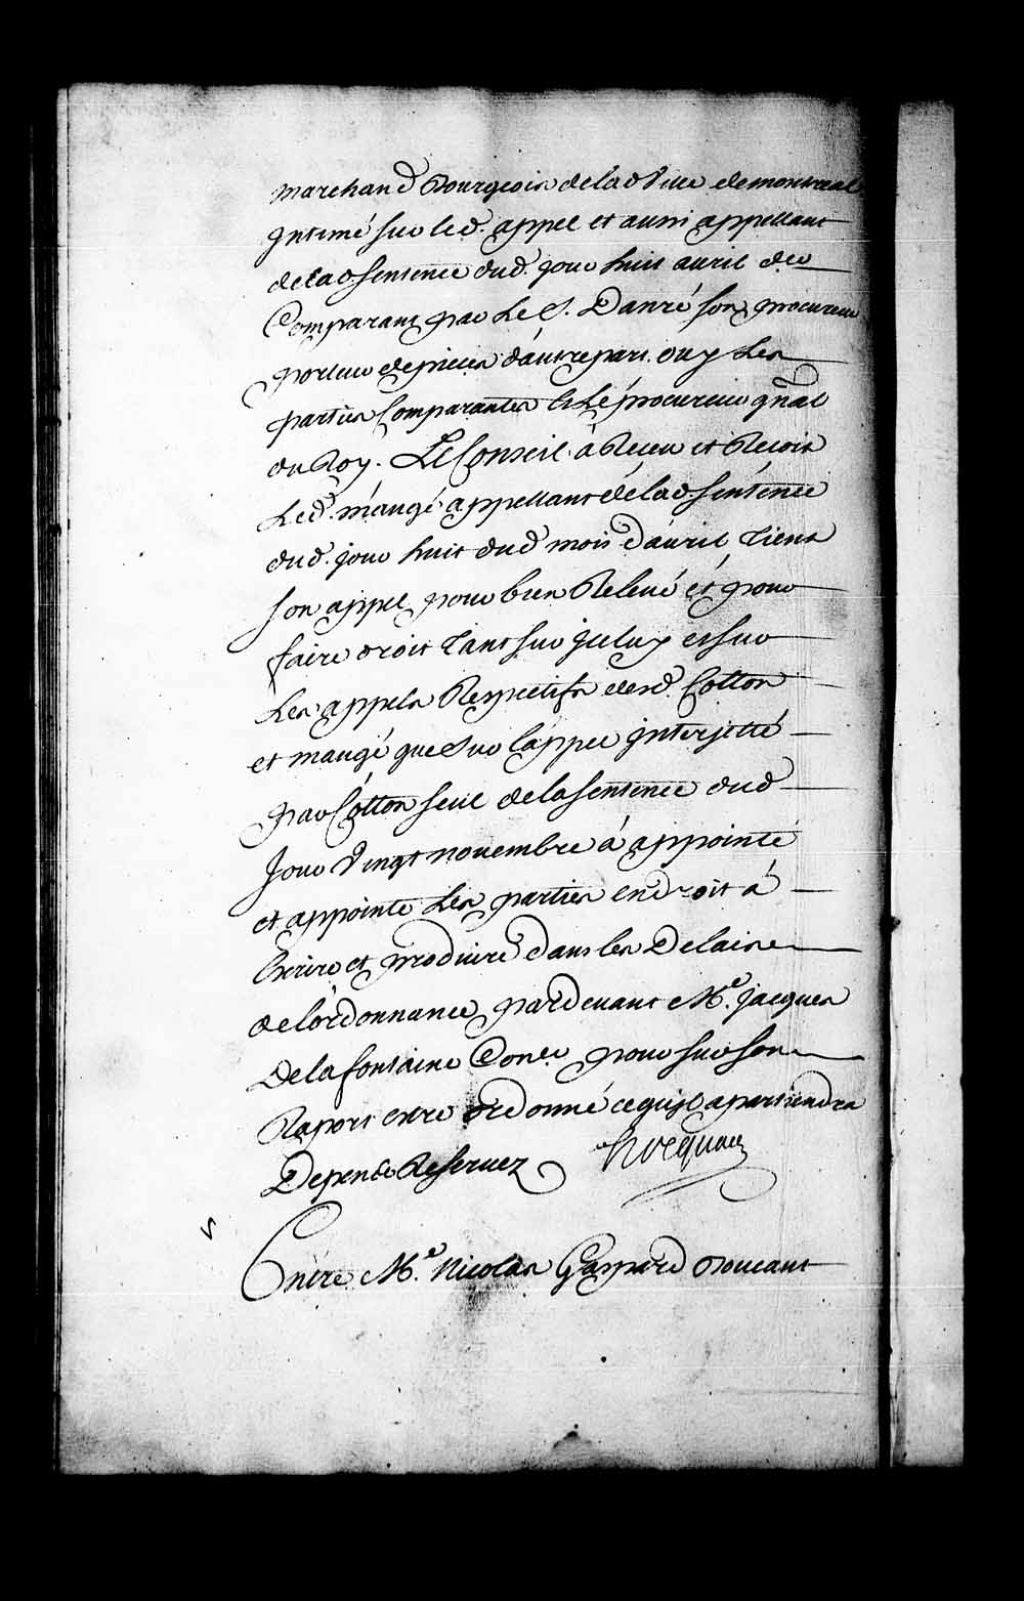 marchand Bourgeois de lad Ville de montreal
Intimé sur led. appel et aussi appellant
de lad. sentence dud. jour huit avril der
Comparant par Le S. Danré son procureur
porteur de pieces d'autre part. ouy Les
parties Comparantes & Le procureur gnâl
du Roy. Le Conseil à Receu et Recoit
Led. maugé appellant de lad. sentence
dud. jour huit dud mois d'avril tient
son appel pour bien Relevé et pour
faire droit tant sur iceluy et sur
Les appels Respectifs desd. Cotton
et maugé que sur l'appel interjetté
par Cotton seul de la sentence dud
Jour Vingt novembre à appointé
et appointe Les parties en droit à
Ecrire et produire dans les Delais
de lordonnance pardevant Me. Jacques
Delafontaine Coner pour sur son
Raport estre ordonné ce quil apartiendra
Depens Reservez Hocquart
Entre Me. Nicolas Gaspard Boucault